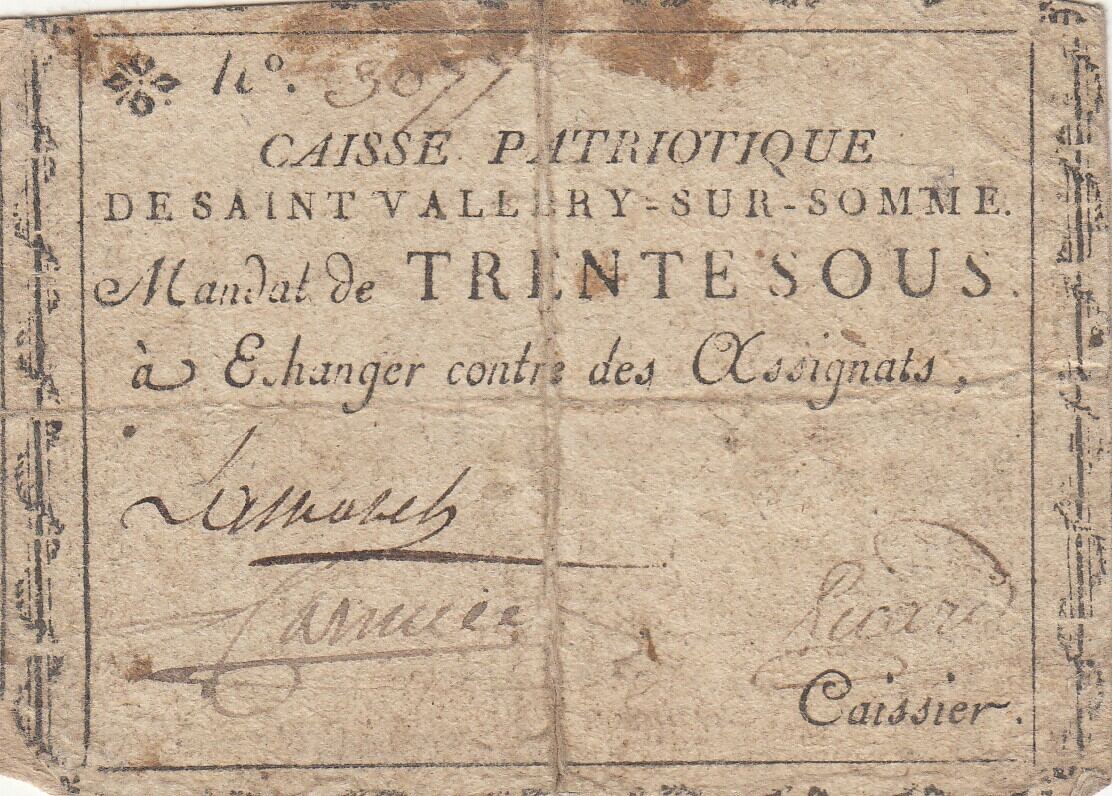 No. 3077
CAISSE PATRIOTIQUE
DE SAINT VALLERY-SUR-SOMME.
Mandat de TRENTE SOUS.
à Echanger contre des Assignats,
Picard
Caissier.